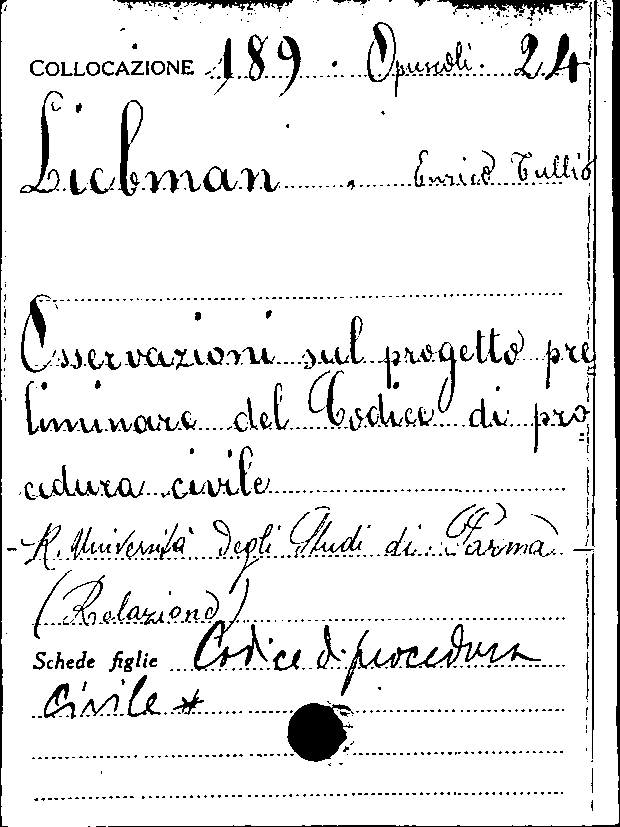 COLLOCAZIONE 189 . Opuscoli. 24
Liebman . Enrico Tullio
Osservazioni sul progetto pre
liminare del Codice di pro=
cedura civile
- R. Università degli Studi di Parma -
(Relazione)
Schede figlie Codice di procedura
civile *